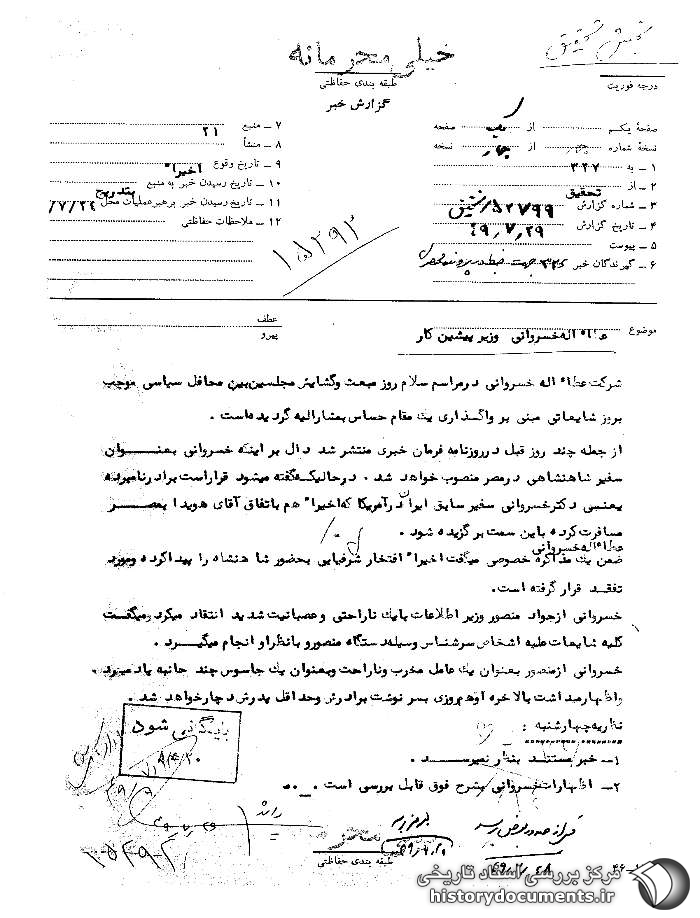 خیلی محرمانه
طبقه بندی حفاظتی
گزارش خبر
درجه فوریت
صفحهٔ یکم از یک صفحه
نسخهٔ شماره از چهار نسخه
۱ ـ به ۳۲۷
۲ ـ از تحقیق
۳ ـ شماره گزارش ۵۲۷۹۹
۴ ـ تاریخ گزارش ۴۹٫۷٫۲۹
۵ ـ پیوست
۶ ـ گیرندگان خبر
۷ ـ منبع ۲۱
۸ ـ منشأ
۹ ـ تاریخ وقوع اخیرا"
۱۰ ـ تاریخ رسیدن خبر به منبع بتدریج
۱۱ ـ تاریخ رسیدن خبر برهبرعملیات محل /۷/۲۶
۱۲ ـ ملاحظات حفاظتی
عطف
پیرو
موضوع عطاء اله خسروانی وزیر پیشین کار
شرکت عطاء اله خسروانی درمراسم سلام روز مبعث وگشایش مجلسین بین محافل سیاسی موجب
بروز شایعاتی مبنی بر واگذاری یک مقام حساس بمشارالیه گردیده است .
از جمله چند روز قبل در روزنامه فرمان خبری منتشر شد دال بر اینکه خسروانی بعنوان
سفیر شاهنشاهی درمصر منصوب خواهد شد . درحالیکه گفته میشود قراراست برادرنامبرده
یعنی دکترخسروانی سفیر سابق ایران درآمریکا که اخیرا" هم باتفاق آقای هویدا بمصر
مسافرت کرده باین سمت برگزیده شود .
عطاء اله خسروانی
ضمن یک مذاکره خصوصی میگفت اخیرا" افتخار شرفیابی بحضور شاهنشاه را پیداکرده ومورد
تفقد قرار گرفته است.
خسروانی ازجواد منصور وزیر اطلاعات بایک ناراحتی وعصبانیت شدید انتقاد میکرد ومیگفت
کلیه شایعات علیه اشخاص سرشناس وسیله دستگاه منصور و بانظراو انجام میگیرد .
خسروانی ازمنصور بعنوان یک عامل مخرب وناراحت وبعنوان یک جاسوس چند جانبه یاد میبرد .
واظهارمیداشت بالاخره اوهم روزی بسرنوشت برادرش وحداقل پدرش دچارخواهد شد .
نظریه چهارشنبه :
۱ـ خبر مستند بنظر نمیرسد .
۲ـ اظهارات خسروانی بشرح فوق قابل بررسی است .
بایگانی شود
طبقه بندی حفاظتی
۴۶-۱
مرکز بررسی اسناد تاریخی
historydocuments.ir